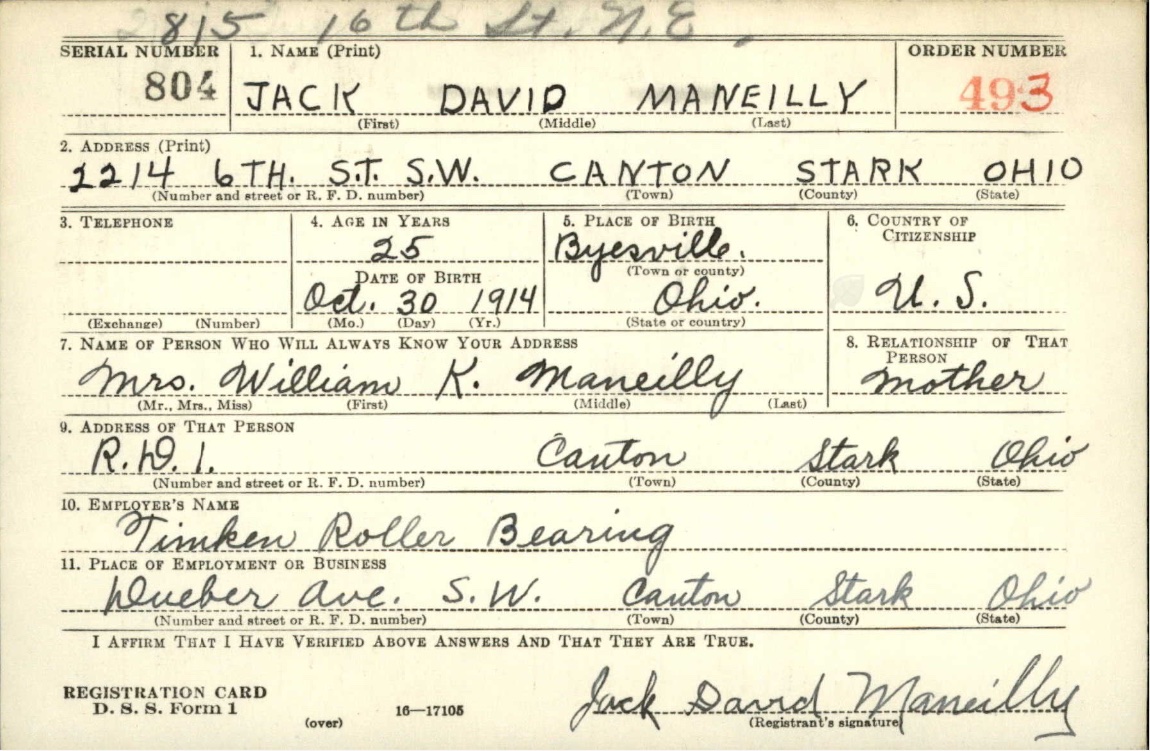 2815 16th St. N.E.
SERIAL NUMBER 1. NAME (Print) ORDER NUMBER
804 JACK DAVID MANEILLY 493
(First) (Middle) (Last)
2. ADDRESS (Print)
2214 6TH. S.T. S.W. CANTON STARK OHIO
(Number and street or R. F. D. number) (Town) (County) (State)
3. TELEPHONE 4. AGE IN YEARS 5. PLACE OF BIRTH 6. COUNTRY OF CITIZENSHIP
25 Byesville.
DATE OF BIRTH (Town or county)
Oct. 30 1914 Ohio. U. S.
(Exchange) (Number) (Mo.) (Day) (Yr.) (State or country)
7. NAME OF PERSON WHO WILL ALWAYS KNOW YOUR ADDRESS 8. RELATIONSHIP OF THAT PERSON
Mrs. William K. Maneilly Mother
(Mr., Mrs., Miss) (First) (Middle) (Last)
9. ADDRESS OF THAT PERSON
R.D.1. Canton Stark Ohio
(Number and street or R. F. D. number) (Town) (County) (State)
10. EMPLOYER'S NAME
Timken Roller Bearing
11. PLACE OF EMPLOYMENT OR BUSINESS
Dueber Ave. S.W. Canton Stark Ohio
(Number and street or R. F. D. number) (Town) (County) (State)
I AFFIRM THAT I HAVE VERIFIED ABOVE ANSWERS AND THAT THEY ARE TRUE.
REGISTRATION CARD
D. S. S. Form 1 (over) 16—17105 Jack David Maneilly
(Registrant's signature)